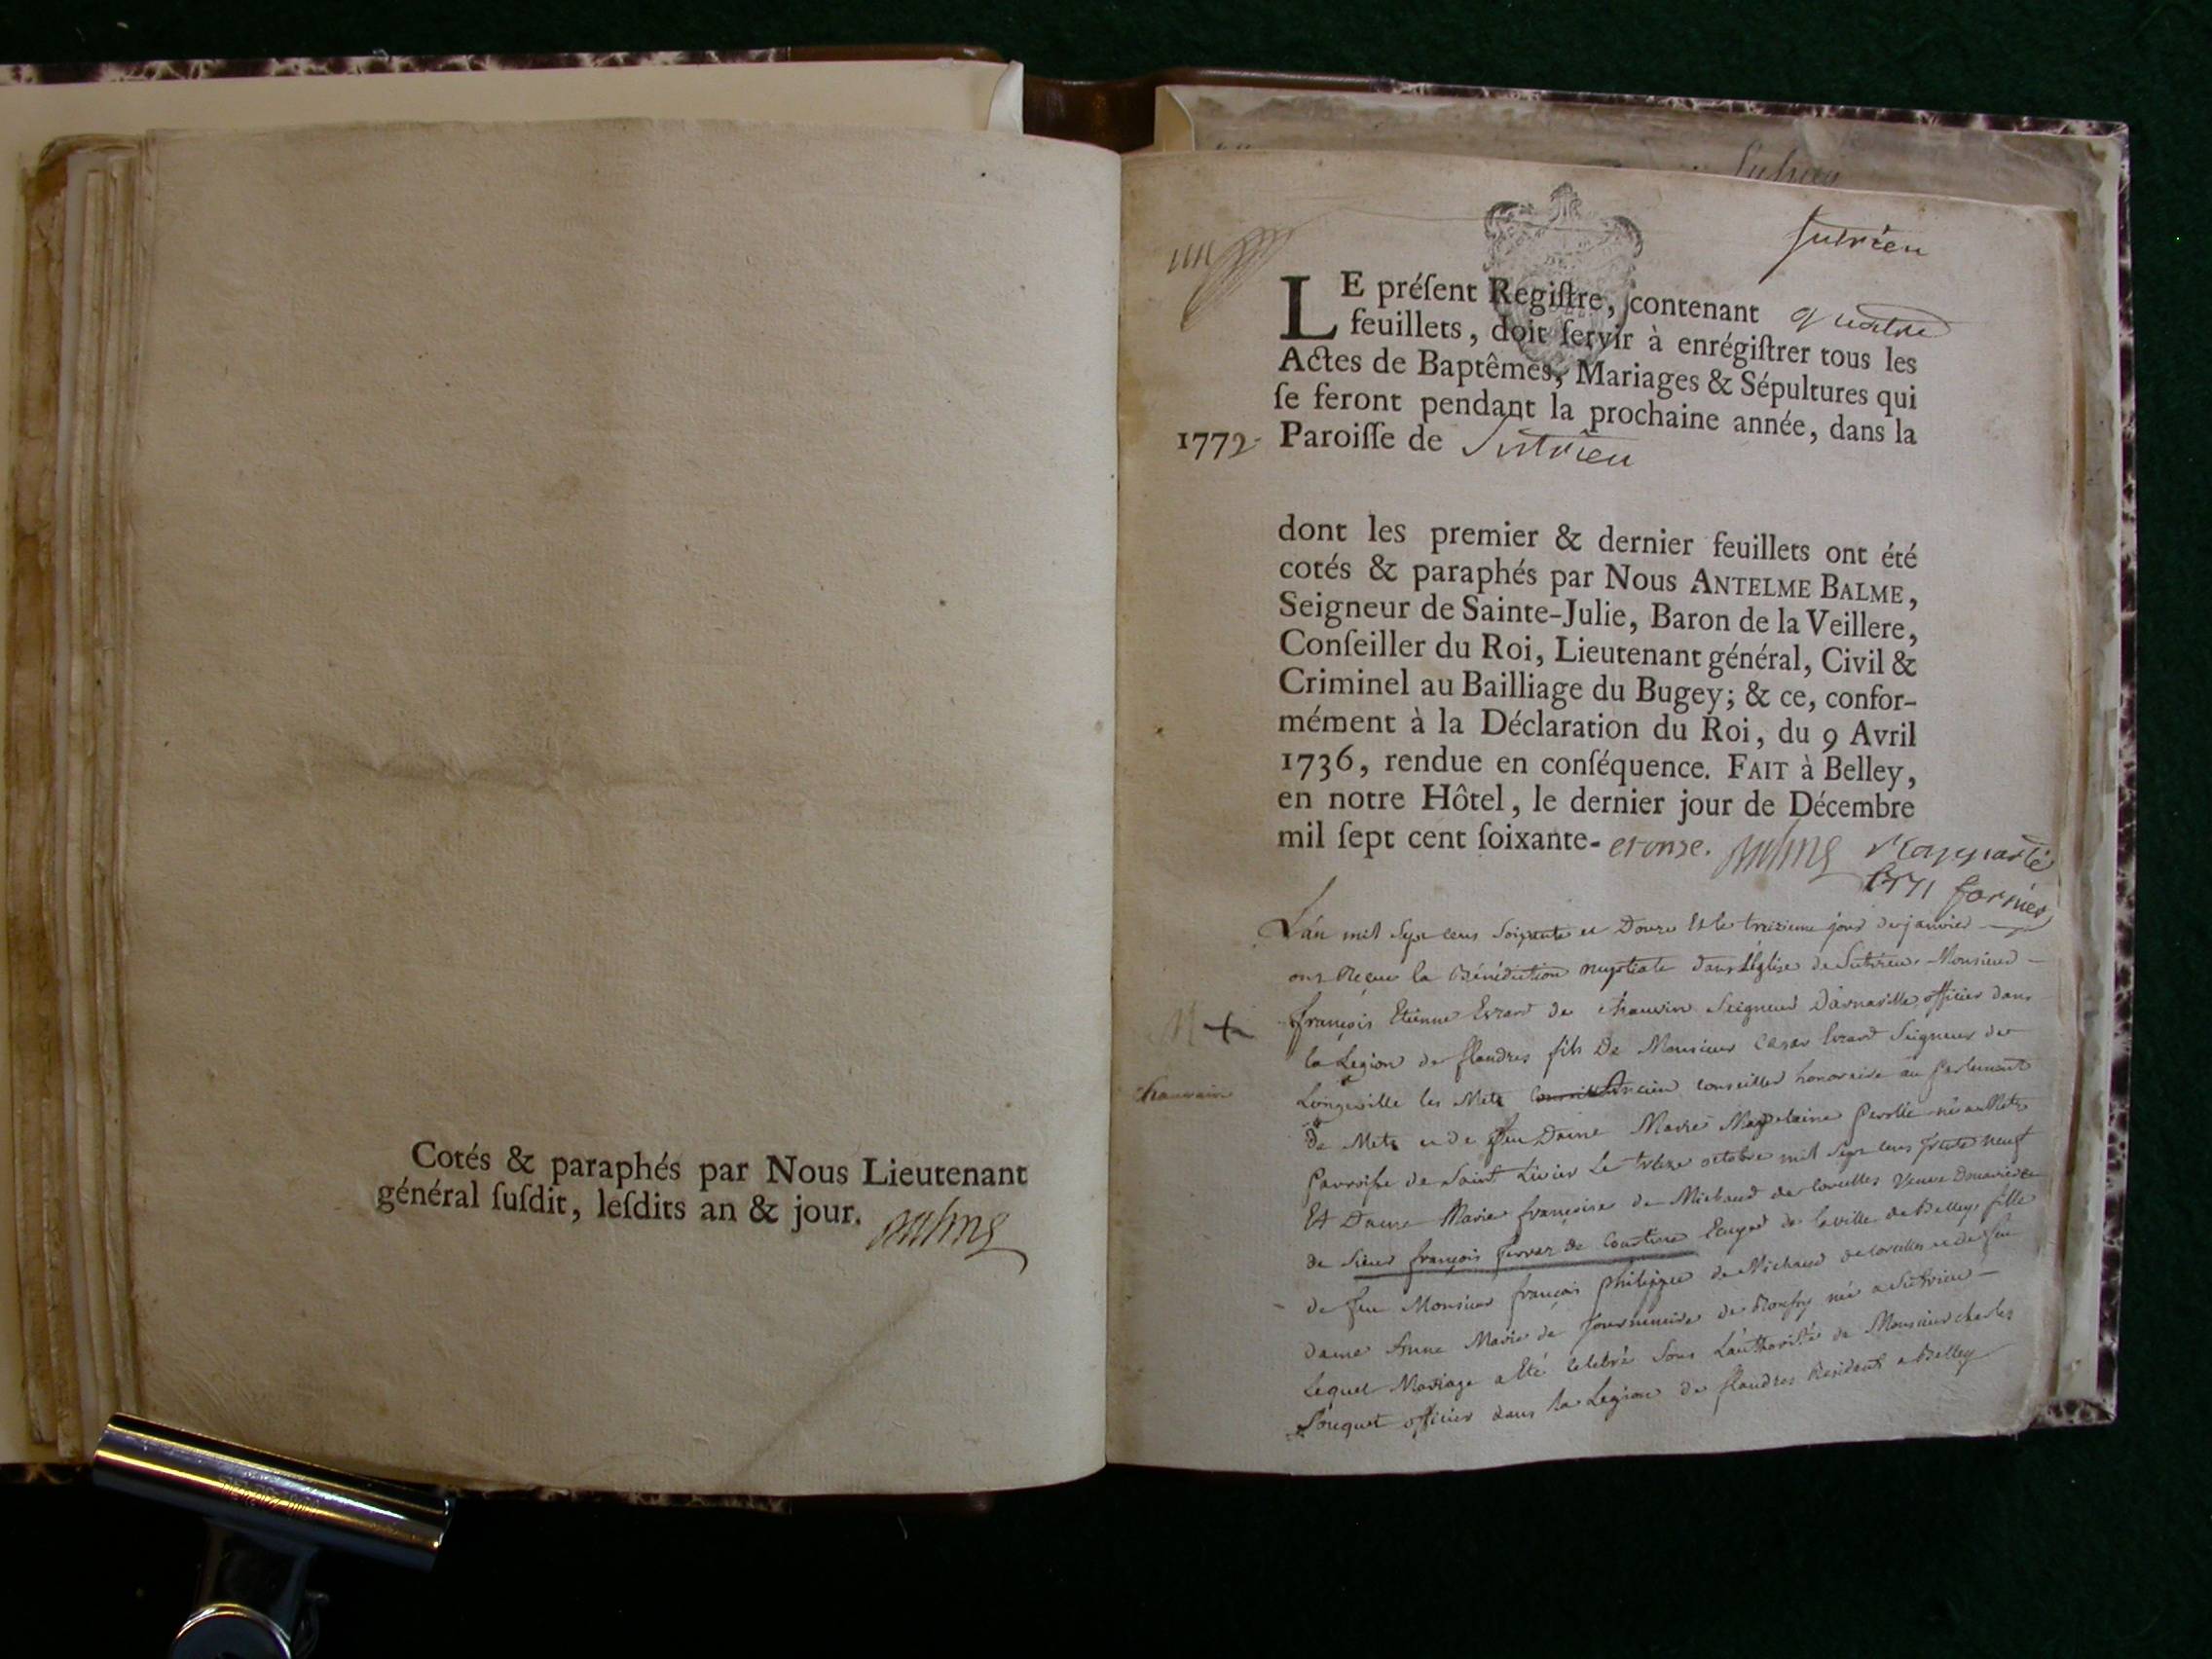 Cotés & paraphés par Nous Lieutenant
général ſuſdit, leſdits an & jour.
Balme
Sutrieu
LE préſent Regiſtre, contenant quatre
feuillets, doit ſervir à enrégiſtrer tous les
Actes de Baptêmes, Mariages & Sépultures qui
ſe feront pendant la prochaine année, dans la
1772 Paroiſſe de Sutrieu
dont les premier & dernier feuillets ont été
cotés & paraphés par Nous ANTELME BALME,
Seigneur de Sainte-Julie, Baron de la Veillere,
Conſeiller du Roi, Lieutenant général, Civil &
Criminel au Bailliage du Bugey; & ce, confor-
mément à la Déclaration du Roi, du 9 Avril
1736, rendue en conſéquence. FAIT à Belley,
en notre Hôtel, le dernier jour de Décembre
mil ſept cent ſoixante- et onze. Balme
L'an mil Sept cens Soixante et Douze Et le treizieme jour de janvier
ont Reçeu la Bénédiction nuptiale dans L'Eglise de Sutrieu Monsieur
M + françois Etienne Evrard de chauvin Seigneur D'arnaville officier dans
la Legion de flandres fils De Monsieur Cesar Evrard Seigneur de
chauvain Longeville les Metz ancien conseiller honoraire au Parlement
de Metz et de feu Dame Marie Magdelaine né a Metz
Parroisse de Saint Livier Le treize octobre mil Sept cens trente neuf
Et Dame Marie françoise de Michaud de Corcelles Veuve Douairiere
de Sieur françois ferrar de Ecuyer de la ville de Belley, fille
de feu Monsieur françois philippe de Michaud de Corcelles et de feu
dame Anne Marie de de née a Sutrieu
Lequel Mariage a Eté célébré Sous L'authorité de Monsieur charles
fouquet officier dans la Legion de flandres Resident a Belley